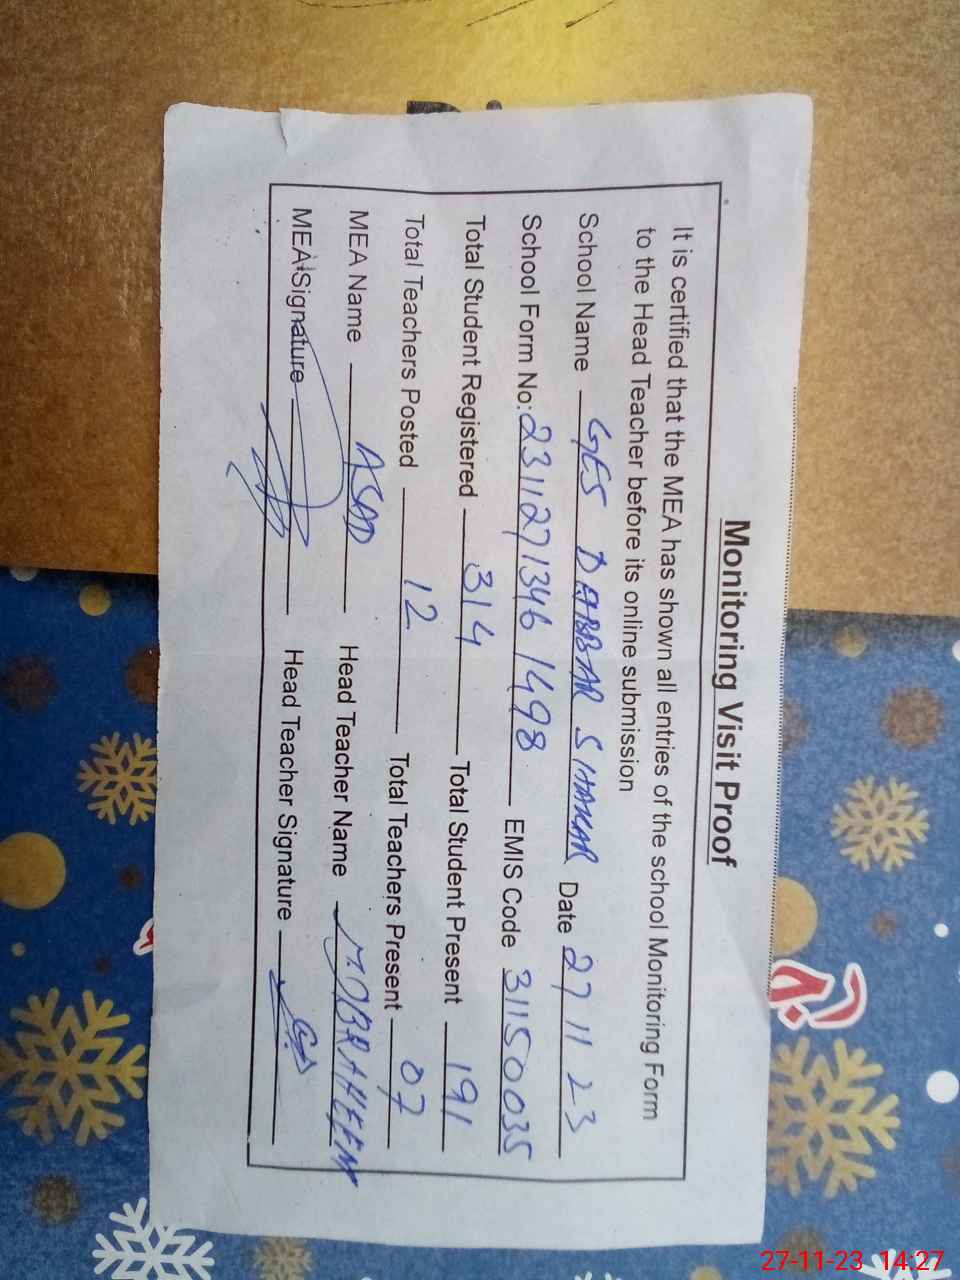 Monitoring Visit Proof
It is certified that the MEA has shown all entries of the school Monitoring Form
to the Head Teacher before its online submission
School Name GES DABBAR SHAKAR Date 27 11 23
School Form No: 2311271346 1498 EMIS Code 31150035
Total Student Registered 314 Total Student Present 191
Total Teachers Posted 12 Total Teachers Present 07
MEA Name ASAD Head Teacher Name M.OBRAHEEM
MEA Signature Head Teacher Signature
27-11-23 14:27